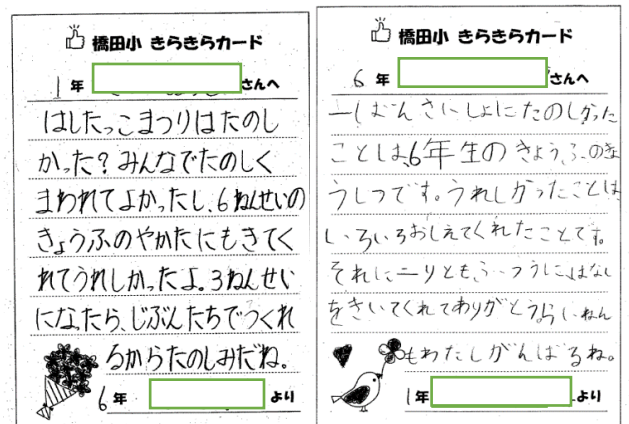 橋田小 きらきらカード
1年 さんへ
はしたっこまつりはたのし
かった?みんなでたのしく
まわれてよかったし、6ねんせいの
きょうふのやかたにもきてく
れてうれしかったよ。3ねんせい
になったら、じぶんたちでつくれ
るからたのしみだね。
6年 より
橋田小 きらきらカード
6年 さんへ
一ばんさいしょにたのしかった
ことは、6年生のきょうふのきょ
うしつです。うれしかったことは、
いろいろおしえてくれたことです。
それに二りともふつうにはなし
をきいてくれてありがとう。らいねん
もわたしがんばるね。
1年 より